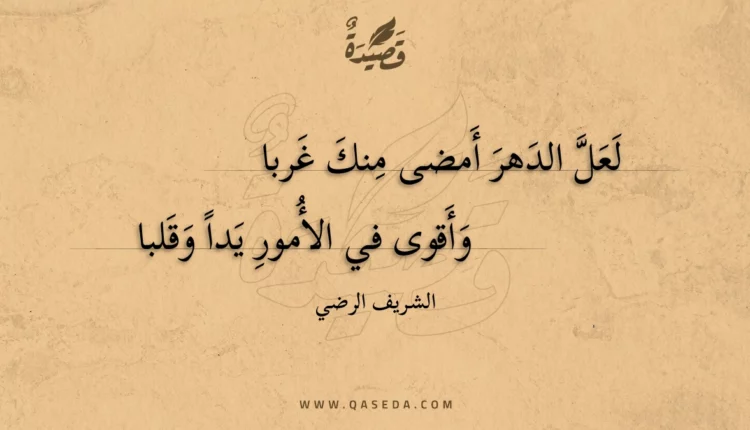 قَصِيدَةٌ
لَعَلَّ الدَهرَ أَمضى مِنكَ غَربا
وَأَقوى في الأُمورِ يَداً وَقَلبا
الشريف الرضي
WWW.QASEDA.COM